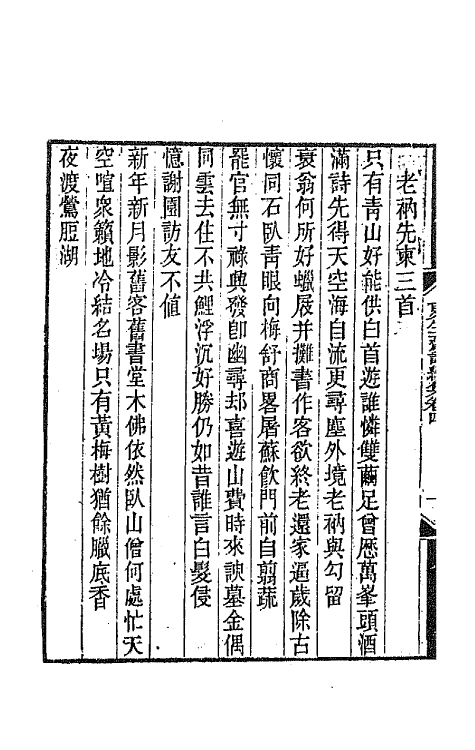 老衲先東三首
只有青山好能供白首遊誰憐雙繭足曾歷萬峯頭酒
滿詩先得天空海自流更尋塵外境老衲與勾留
衰翁何所好蠟屐并攤書作客欲終老還家逼歲除古
懷同石臥青眼向梅舒商畧屠蘇飮門前自翦蔬
罷官無寸祿興發卽幽尋却喜遊山費時來諛墓金偶
同雲去住不共鯉浮沉好勝仍如昔誰言白髮侵
憶謝園訪友不値
新年新月影舊客舊書堂木佛依然臥山僧何處忙天
空喧衆籟地冷結名場只有黃梅樹猶餘臘底香
夜渡鶯脰湖